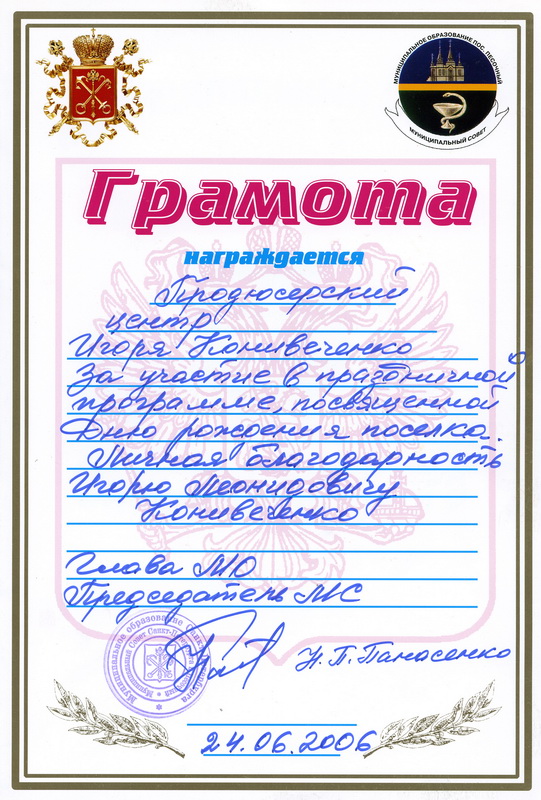 МУНИЦИПАЛЬНОЕ ОБРАЗОВАНИЕ ПОС. ПЕСОЧНЫЙ
МУНИЦИПАЛЬНЫЙ СОВЕТ
Грамота
награждается
Продюсерский
центр
Игоря Конивеченко
За участие в праздничной
программе, посвященной
Дню рождения поселка.
Личная благодарность
Игорю Леонидовичу
Конивеченко
Глава МО
Председатель МС
Муниципальное образование Санкт-Петербурга
Муниципальный Совет
Н.П.Панасенко
24.06.2006